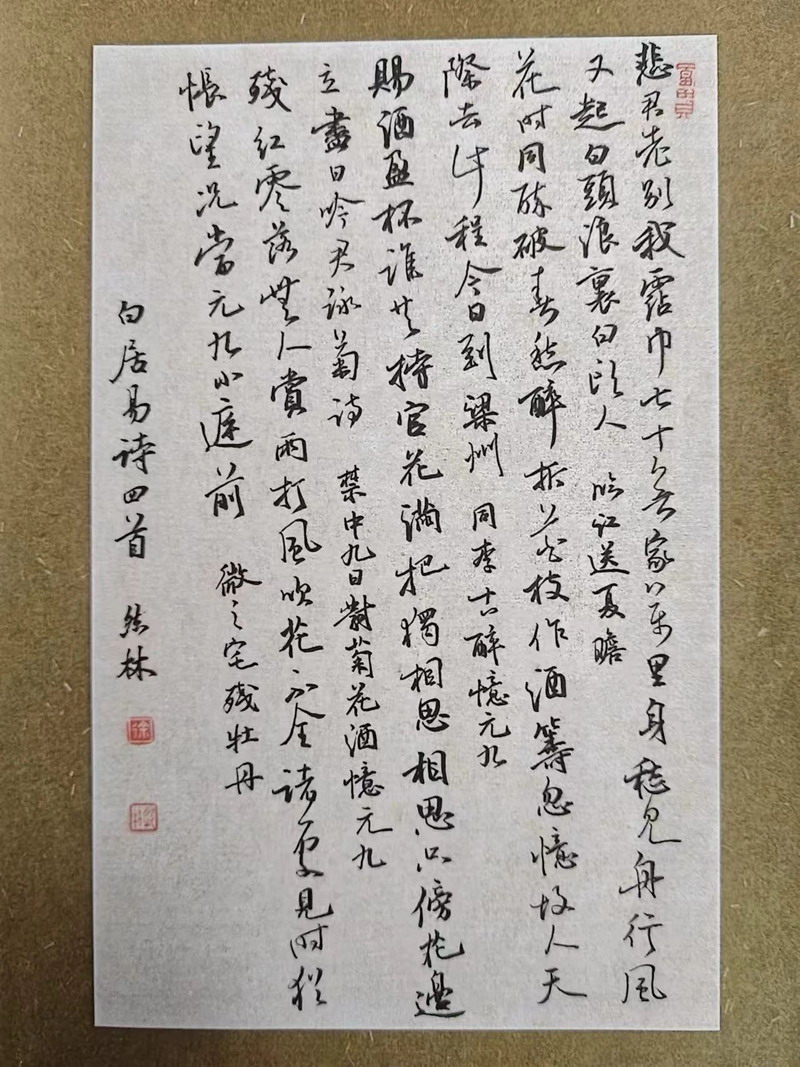 悲君老别我霑巾七十无家万里身愁见舟行风
又起白頭浪裏白头人 临江送夏瞻
花时同醉破春愁醉折花枝作酒籌忽憶故人天
際去计程今日到梁州 同李十醉憶元九
賜酒盈杯谁共持官花满把獨相思相思只傍花邊
立盡日吟君詠菊诗 禁中九日對菊花酒憶元九
残红零落無人賞雨打風吹花不全諸處見时猶
悵望况當元九小庭前 微之宅残牡丹
白居易诗四首 林
徐